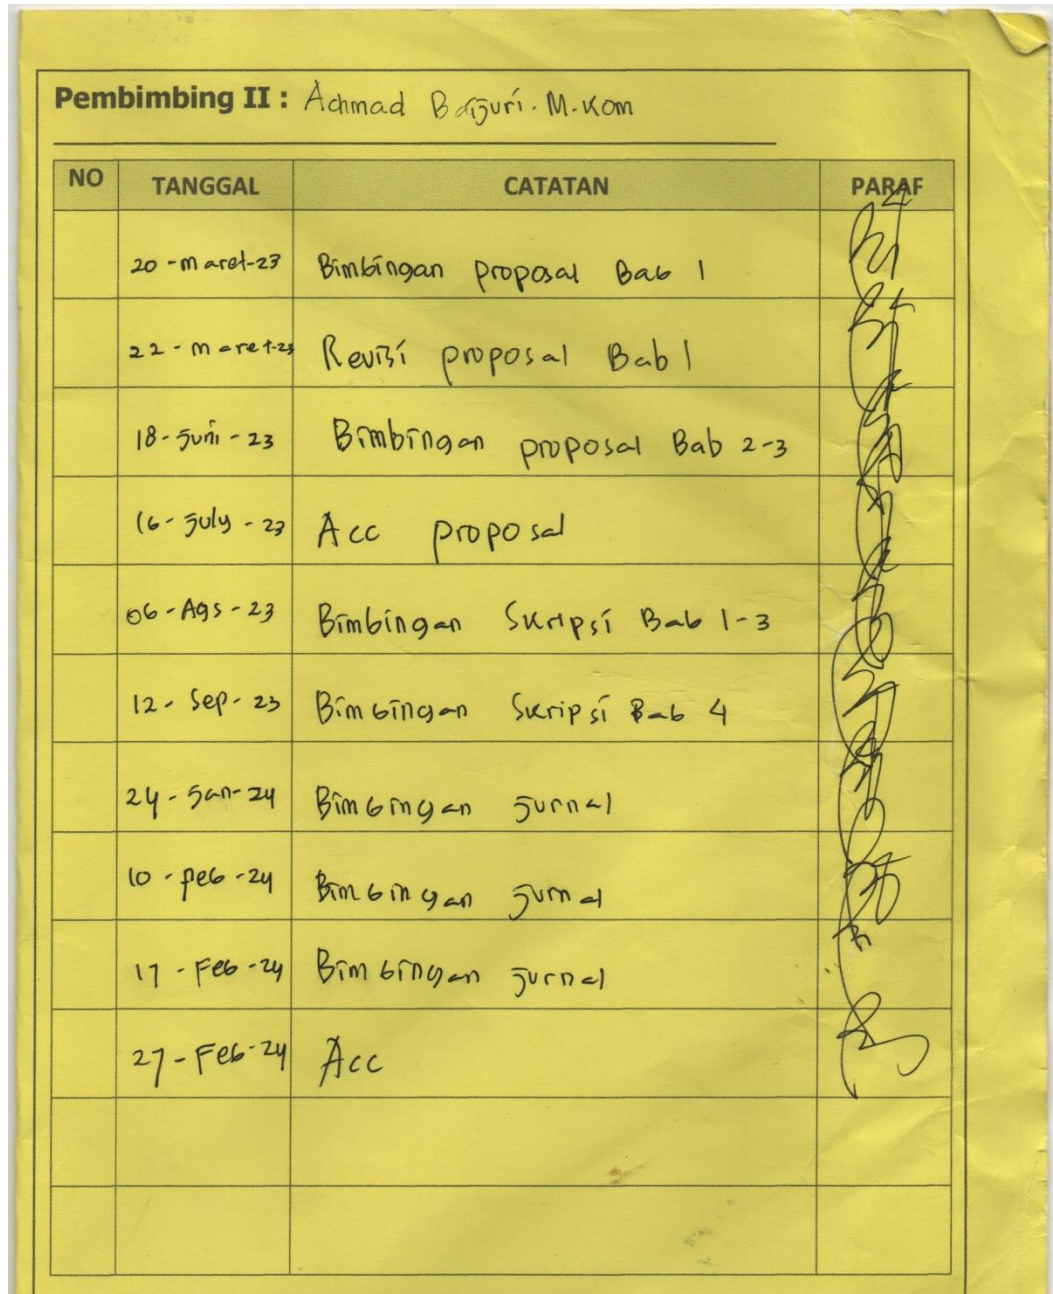 Pembimbing II : Achmad Baijuri. M.Kom
NO TANGGAL CATATAN PARAF
20 - maret-23 Bimbingan proposal Bab 1
22 - maret-23 Revisi proposal Bab 1
18 - Juni - 23 Bimbingan proposal Bab 2-3
16 - July - 23 Acc proposal
06 - Ags - 23 Bimbingan Skripsi Bab 1-3
12 - Sep - 23 Bimbingan Skripsi Bab 4
24 - Jan - 24 Bimbingan Jurnal
10 - peb - 24 Bimbingan Jurnal
17 - Feb - 24 Bimbingan Jurnal
27 - Feb - 24 Acc